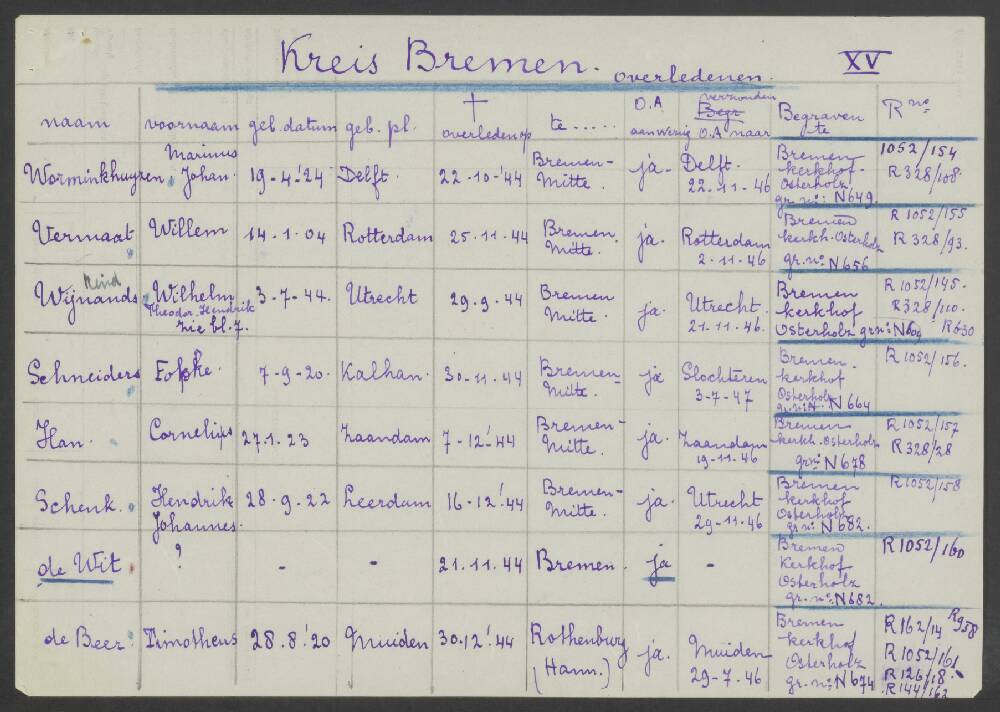 Kreis Bremen. overledenen. XV
naam voornaam geb. datum geb. pl. † overleden op te ..... O.A aanwezig verzonden Begr O.A naar Begraven te R nos
Worminkhuyzen, Marinus Johan. 19-4-'24 Delft. 22-10-'44 Bremen-Mitte. ja. Delft. 22.11-46 Bremen kerkhof-Osterholz gr. no: N649. 1052/154 R328/108.
Vermaat Willem 14.1.04 Rotterdam 25.11.44 Bremen Mitte. ja. Rotterdam 2-11-46 Bremen kerkh. Osterholz gr. no N656 R1052/155 R328/93.
Wijnands Kind Wilhelm Theodor. Hendrik zie bl. 7. 3-7-44. Utrecht 29-9-44 Bremen Mitte. ja. Utrecht. 21.11-46. Bremen kerkhof Osterholz gr no: N609 R1052/145. R328/110. R630
Schneiders Fokke. 7-9-20. Kalhan. 30-11-44 Bremen-Mitte ja Slochteren 3-7-47 Bremen. kerkhof Osterholz gr. no N664 R1052/156.
Han. Cornelis 27.1.23 Zaandam 7-12-'44 Bremen-Mitte. ja. Zaandam 19-11-46 Bremen kerkh. Osterholz gr no N678 R1052/157 R328/28
Schenk. Hendrik Johannes. 28-9-22 Leerdam 16-12-'44 Bremen-Mitte. ja. Utrecht 29-11-46 Bremen kerkhof Osterholz gr. no N682. R1052/158
de Wit ? - - 21.11.44 Bremen. ja - Bremen kerkhof Osterholz gr. no: N682. R1052/160
de Beer. Timotheus 28.8.'20 Muiden 30.12.'44 Rothenburg (Hann.) ja. Muiden 29-7-46 Bremen kerkhof Osterholz gr. no N674 R162/14 R958 R1052/161 R126/18. R144/162